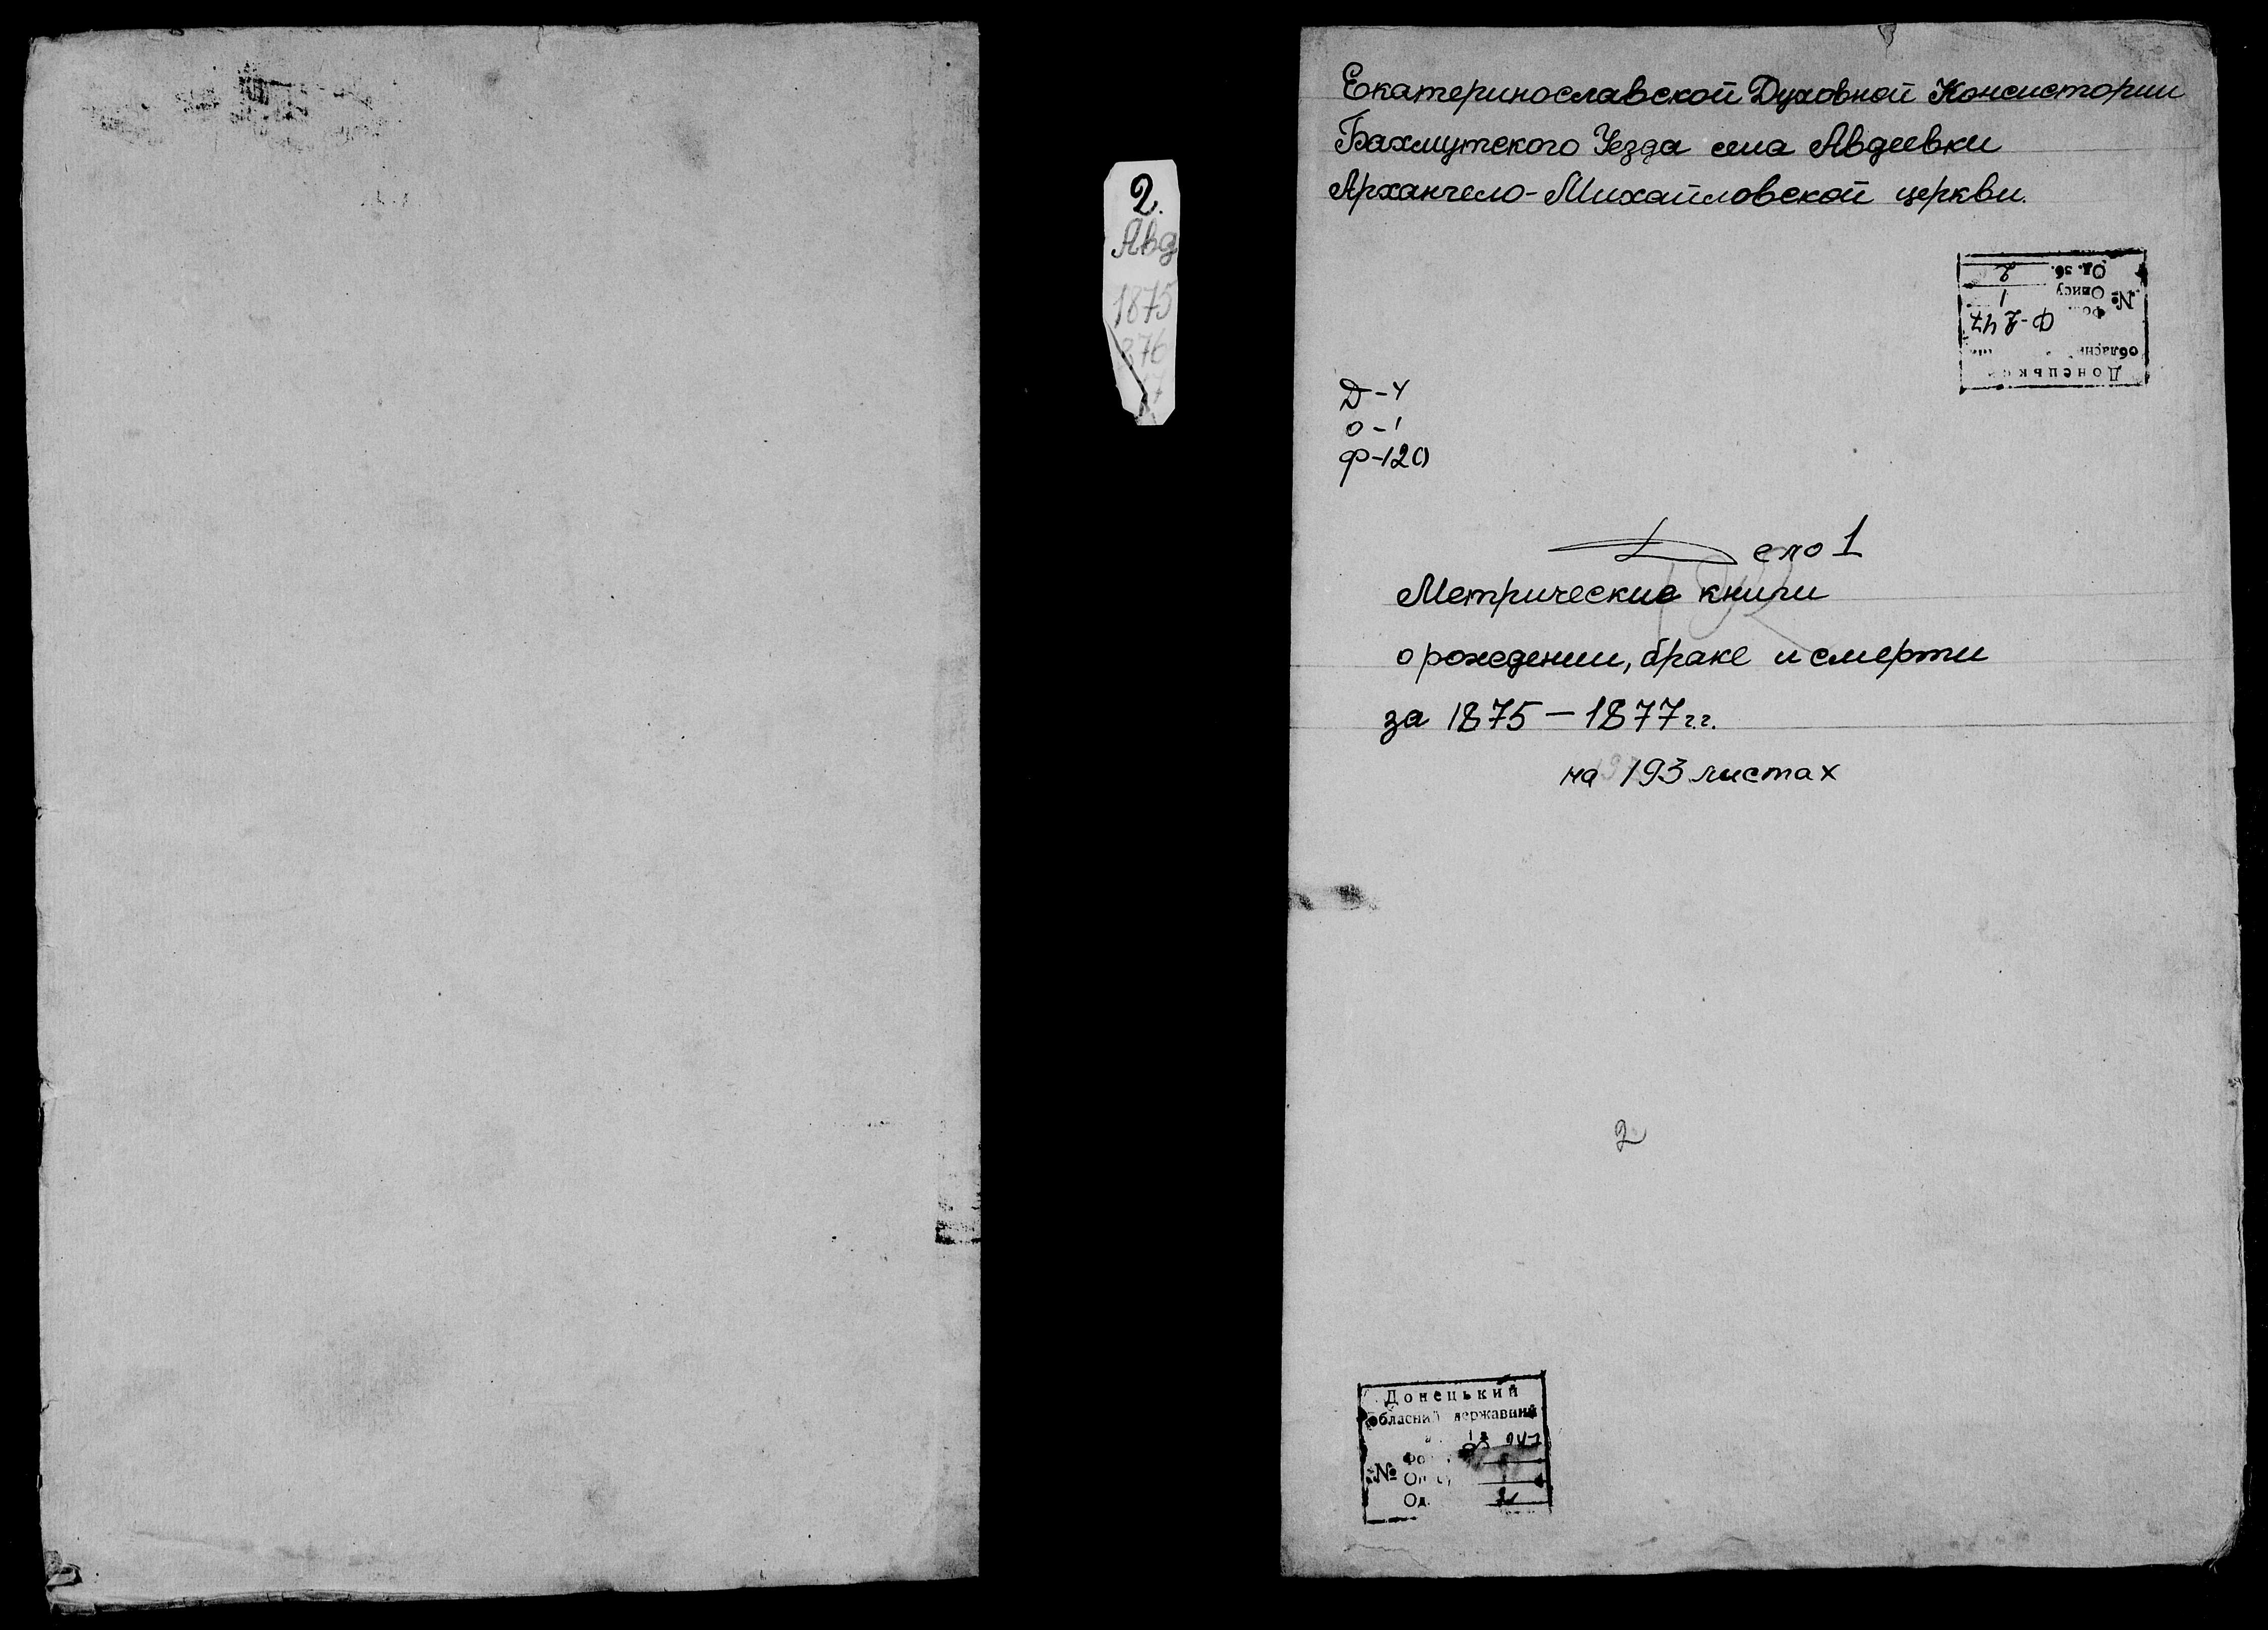 2.
Авд
1875
876
Екатеринославской Духовной Консистории
Бахмутского Уезда села Авдеевки
Архангело-Михайловской церкви.
Донецьки
обласни
№
Ф-247
Опису 1
Од. зб. 2
Д-4
О-1
Ф-120
Дело 1
Метрические книги
о рождении, браке и смерти
за 1875 – 1877 г.г.
на 193 листах
2
Донецький
обласний державний
№
Од.